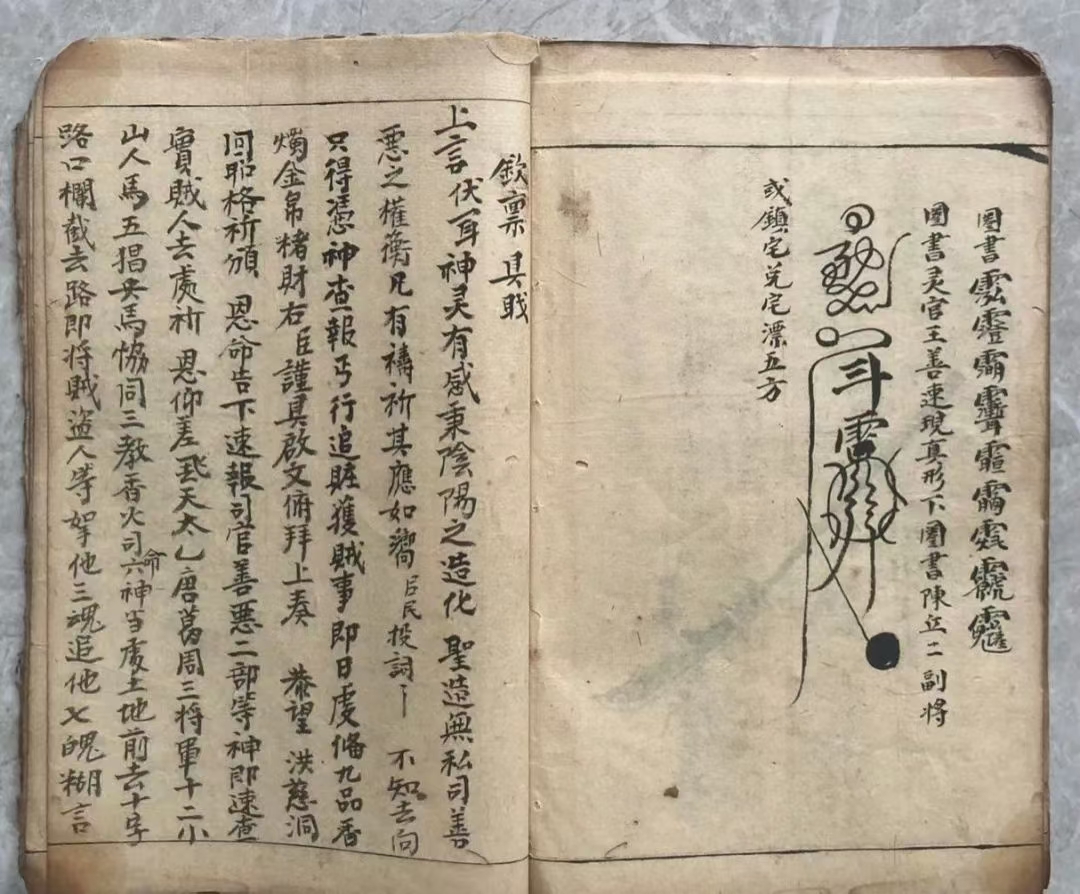 圖書
圖書灵官王善速現真形下圖書陳立二副将
斗
或鎮宅兑宅漂五方
欽禀 具职
上言伏耳神灵有感秉陰陽之造化 聖造無私司善
悪之權衡凡有禱祈其應如嚮 吕民投詞 不知去向
只得憑神查報丐行追賍獲賊事即日虔俻九品香
燭金帛楮財右臣謹具啟文俯拜上奏 恭望 洪慈洞
回昭格祈頒 恩命告下速報司官善惡二部等神即速查
實賊人去處祈 恩仰差飛天太乙唐葛周三将軍十二小
山人馬五猖兵馬恊同三教香火司命六神当處土地前去十字
路口欄截去路即将賊盗人等拏他三魂追他七魄糊言